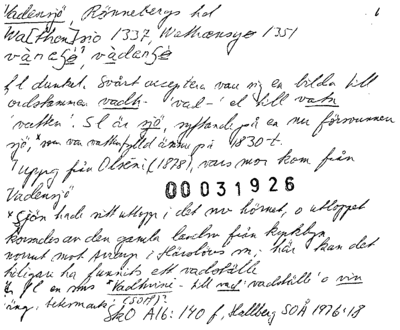 Vadensjö, Rönnebergs hd 6
Wa[then]sio 1337, Wathænsyø 1351
vàdansjè
fl dunkel. Svårt acceptera vare sig en bilda till
ordstammen vadh- 'vad-' el till vatn
'vatten'. Sl är sjö, syftande på en nu försvunnen
sjö, *som var vattenfylld ännu på 1830-t.
'uppg från Olséni (1878), vars mor kom från
Vadensjö
00031926
*Sjön hade sitt utlopp i det nv hörnet, o utloppet
korsades av den gamla landsv från
norrut mot i Härslövs sn; här kan det
tidigare ha funnits ett vadställe
fl en ums *Vadhvini- till vad 'vadställe' o vin
'äng, betesmark' (SOÅ)?
SkO A16: 140 f, Hallberg SOÅ 1976:18